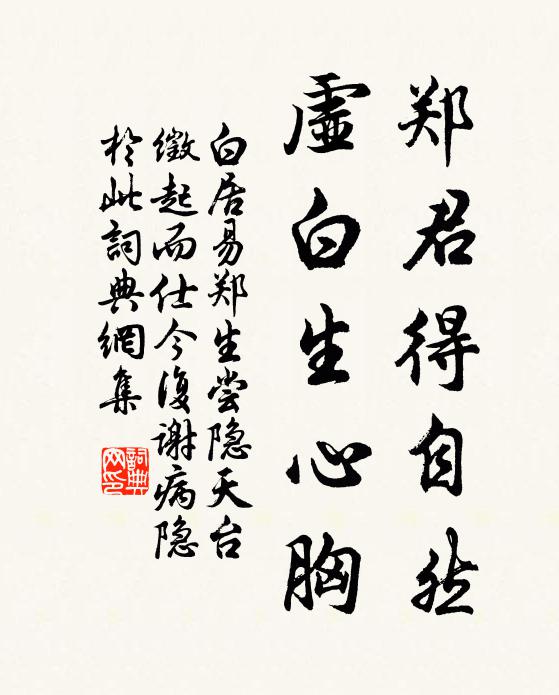 郑君得自然
虚白生心胸
白居易郑生尝隐天台
徵起而仕今復谢病隐
於此詞典網集
詞典网印